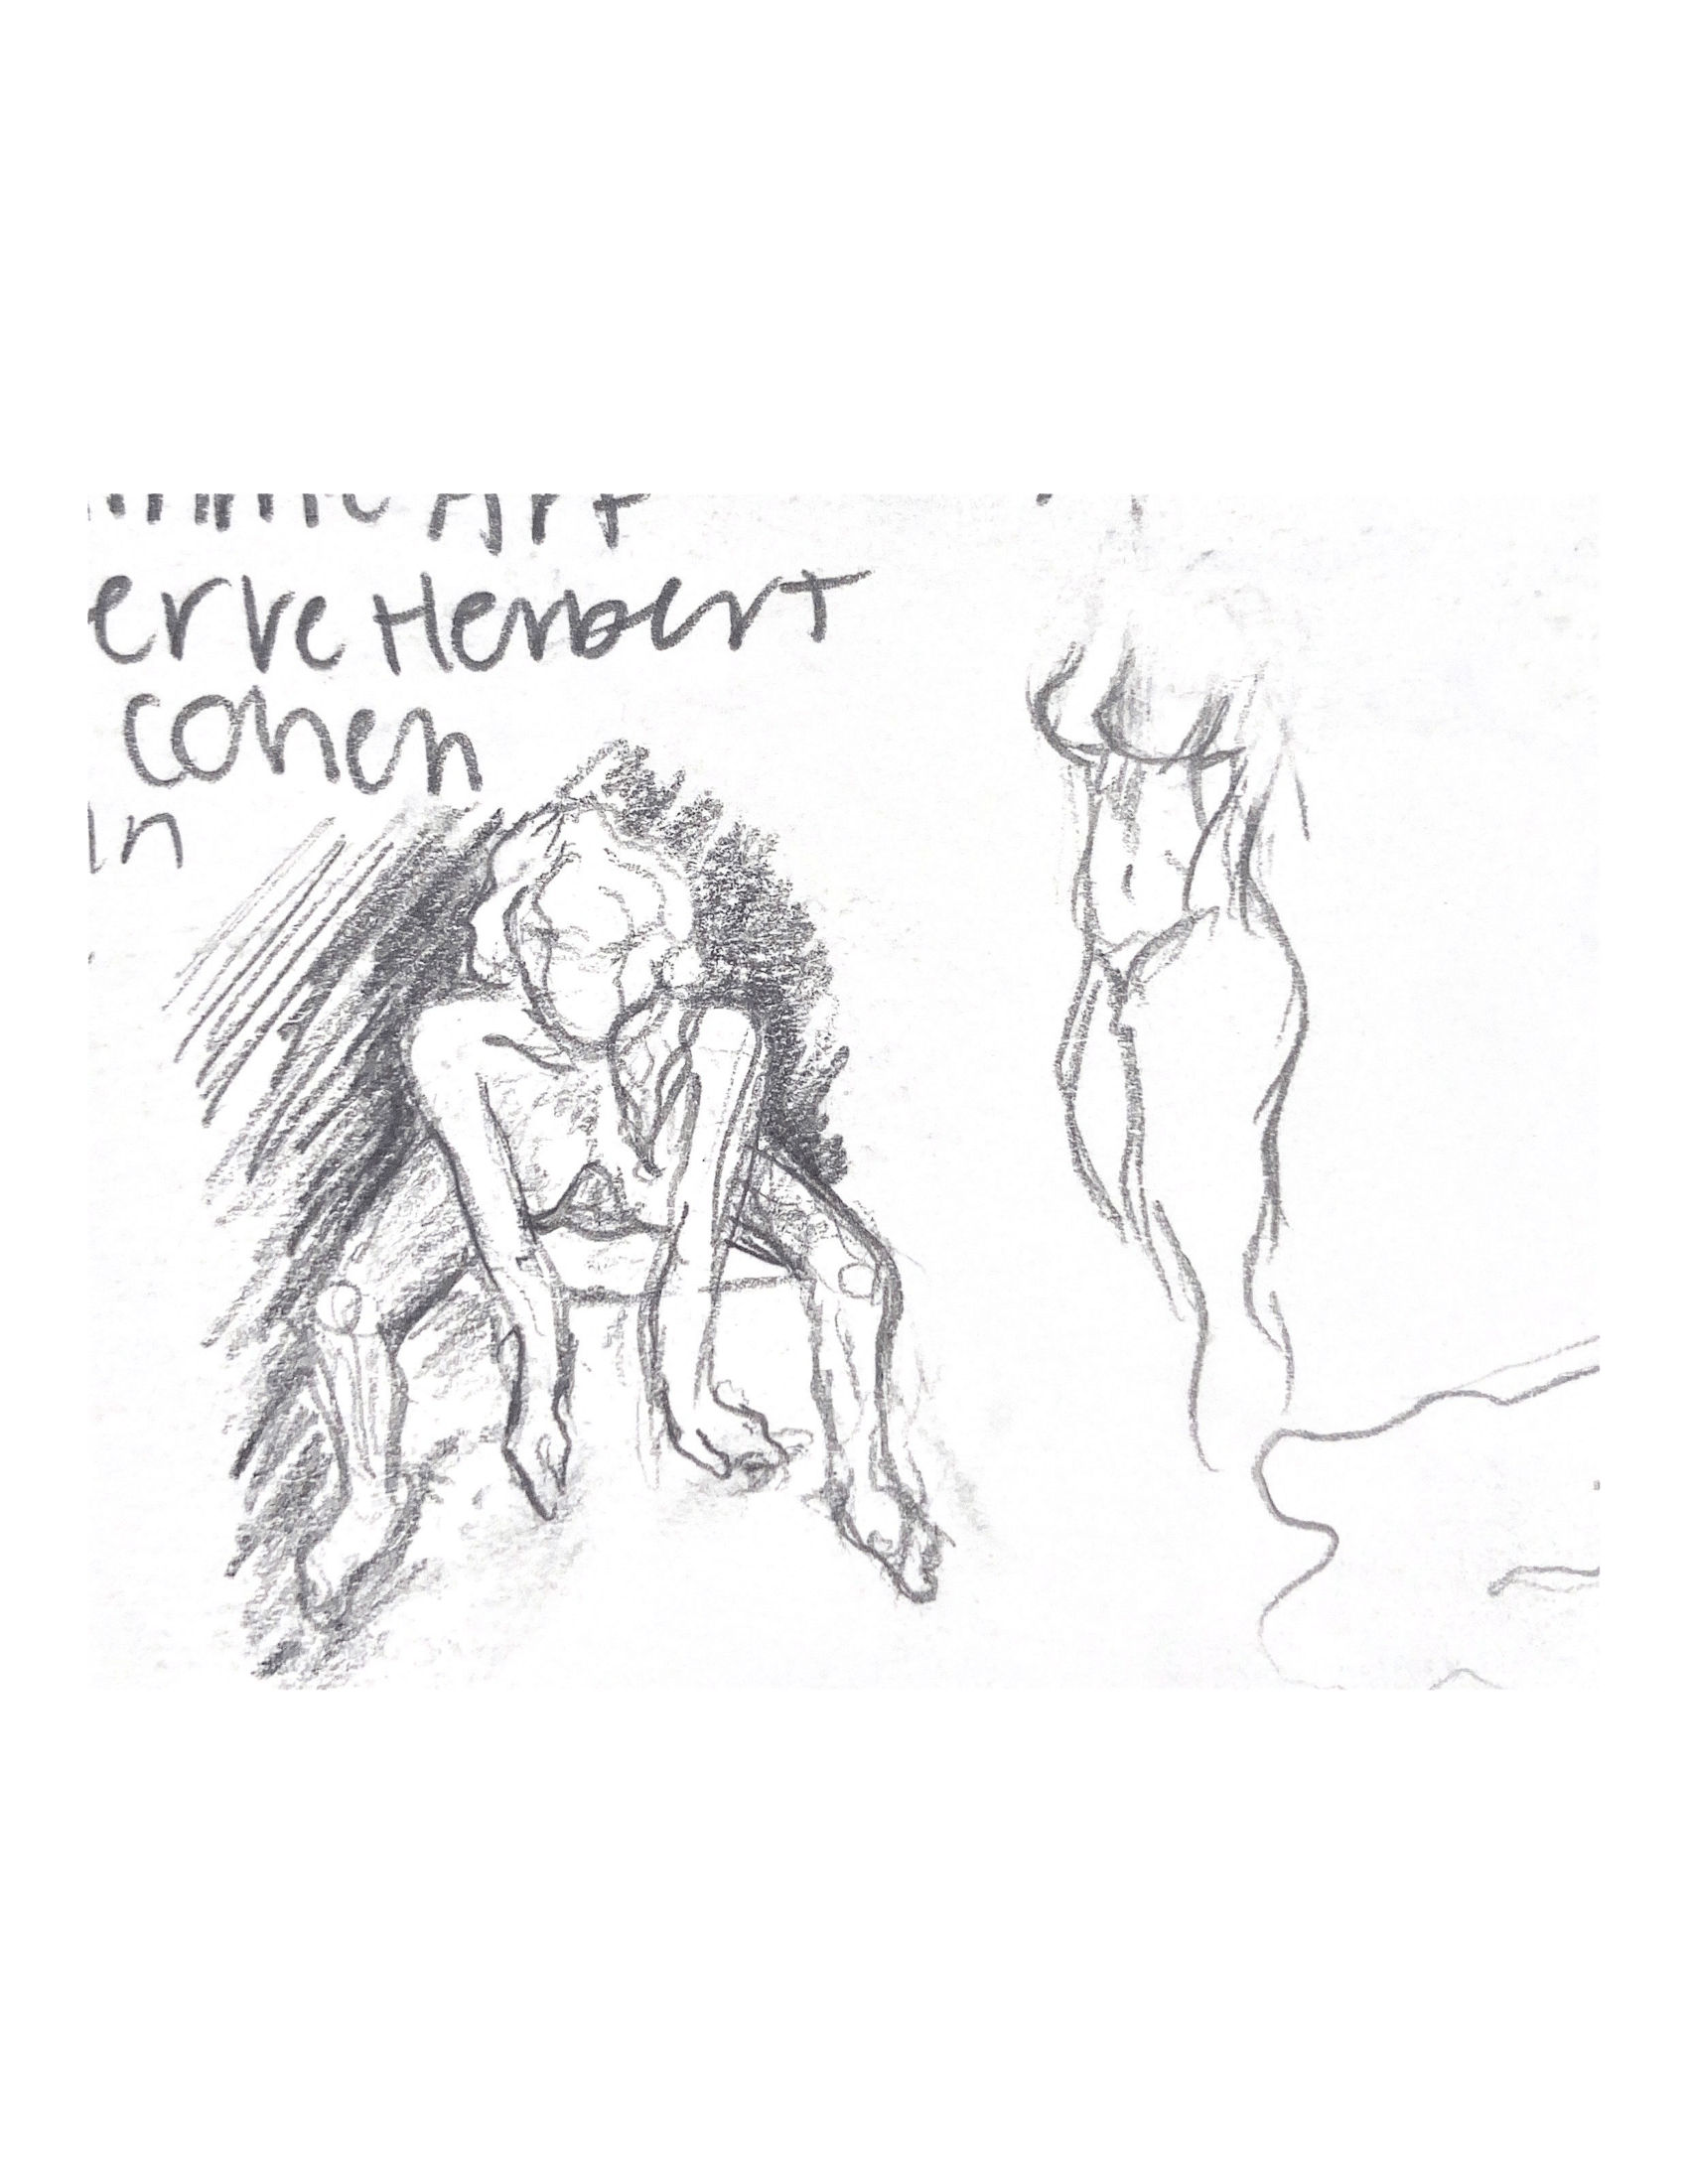 erve Herbert
cohen
in